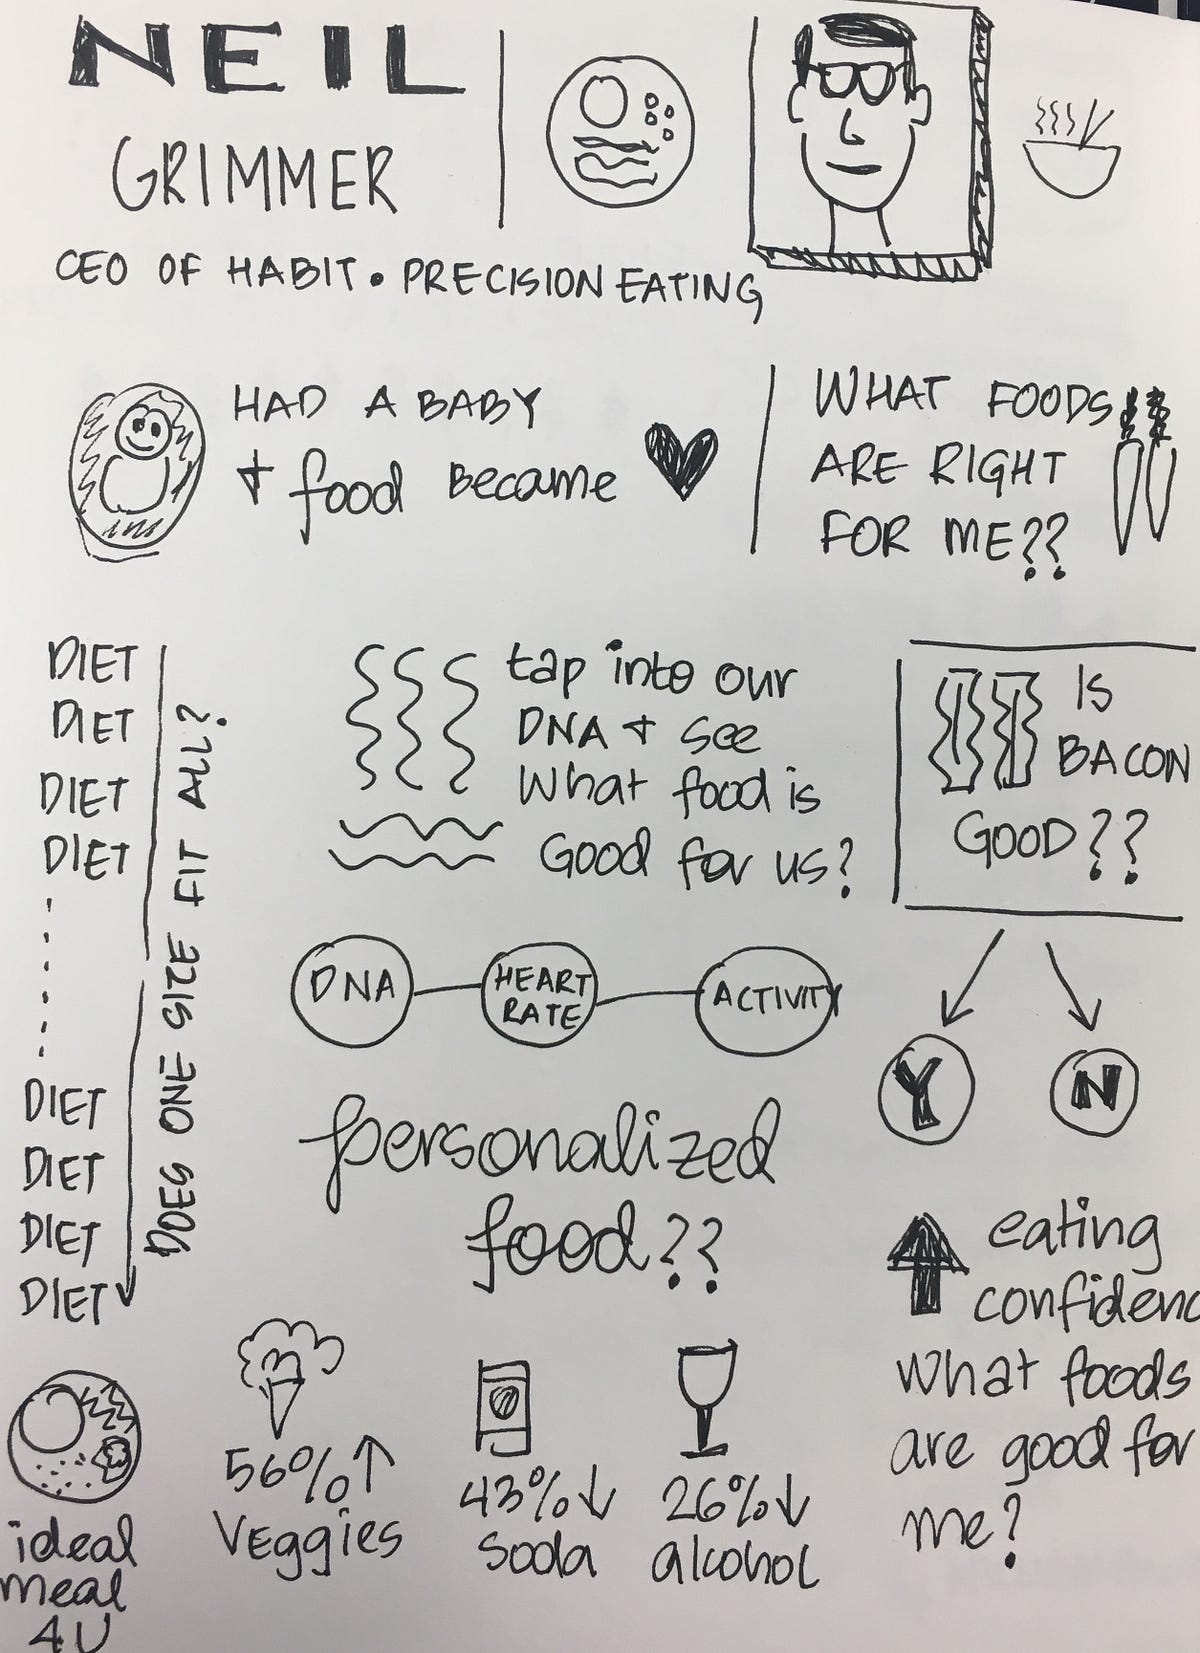 NEIL
GRIMMER
CEO OF HABIT • PRECISION EATING
HAD A BABY
+ food BECAME
WHAT FOODS
ARE RIGHT
FOR ME??
DIET
DIET
DIET
DIET
DIET
DIET
DIET
DIET
DOES ONE SIZE FIT ALL?
tap into our
DNA + see
What food is
Good for us?
IS
BACON
GOOD??
Y
N
DNA
HEART
RATE
ACTIVITY
personalized
food??
eating
confidenc
What foods
are good for
me?
ideal
meal
4U
56%↑
Veggies
43%↓
Soda
26%↓
alcohol